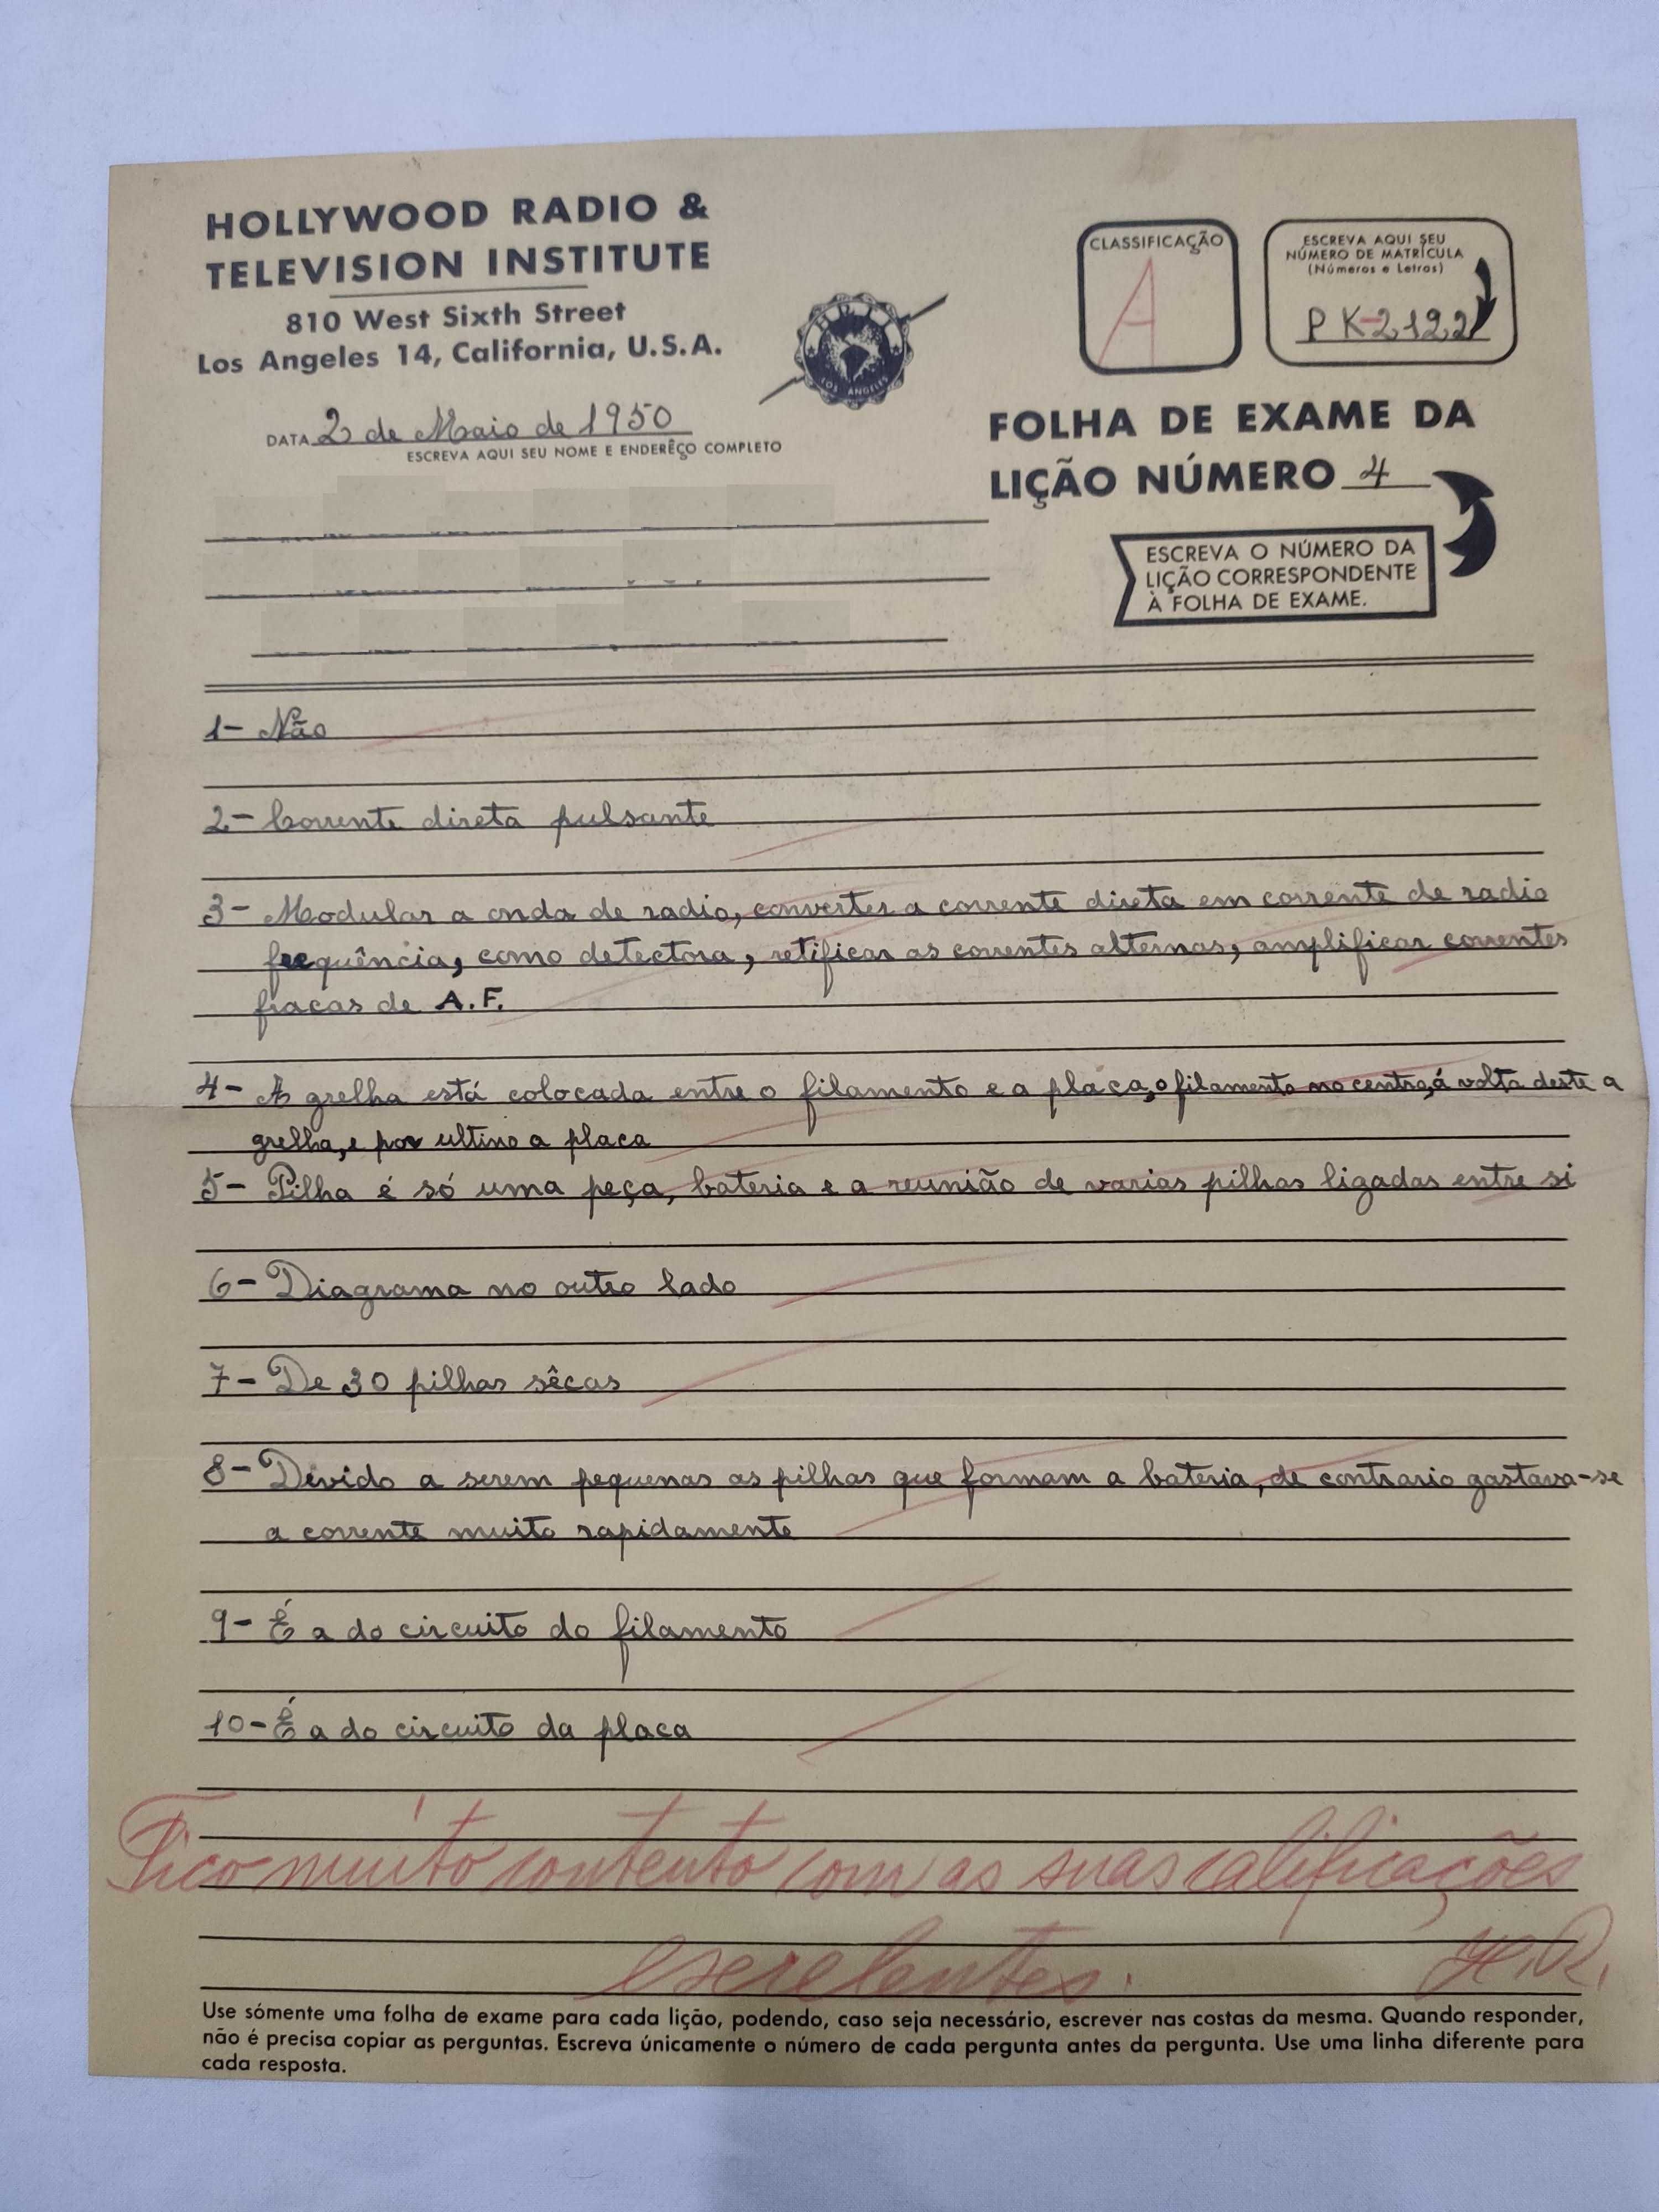 HOLLYWOOD RADIO &
TELEVISION INSTITUTE
810 West Sixth Street
Los Angeles 14, California, U.S.A.
DATA 2 de Maio de 1950
ESCREVA AQUI SEU NOME E ENDERÊÇO COMPLETO
H.R.T.I.
LOS ANGELES
CLASSIFICAÇÃO
A
ESCREVA AQUI SEU
NÚMERO DE MATRÍCULA
(Números e Letras)
PK-2122
FOLHA DE EXAME DA
LIÇÃO NÚMERO 4
ESCREVA O NÚMERO DA
LIÇÃO CORRESPONDENTE
À FOLHA DE EXAME.
1- Não
2- Corrente direta pulsante
3- Modular a onda de radio, converter a corrente direta em corrente de radio
frequência, como detectora, retificar as correntes alternas, amplificar correntes
fracas de A.F.
4- A grelha está colocada entre o filamento e a placa, o filamento no centro, á volta deste a
grelha, e por ultimo a placa
5- Pilha é só uma peça, bateria e a reunião de varias pilhas ligadas entre si
6- Diagrama no outro lado
7- De 30 pilhas sêcas
8- Devido a serem pequenas as pilhas que formam a bateria, de contrario gastava-se
a corrente muito rapidamente
9- É a do circuito do filamento
10- É a do circuito da placa
Fico muito contento com as suas calificações
escelentes. H.R.
Use sómente uma folha de exame para cada lição, podendo, caso seja necessário, escrever nas costas da mesma. Quando responder,
não é precisa copiar as perguntas. Escreva únicamente o número de cada pergunta antes da pergunta. Use uma linha diferente para
cada resposta.